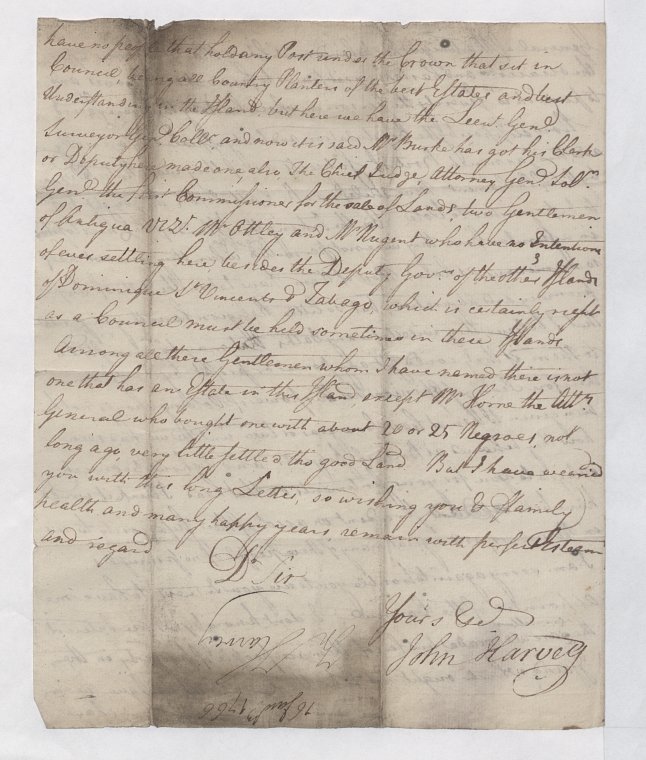 have no people that hold any Post under the Crown that sit in
Council, being all Country Planters of the best Estates and best
Understanding in the Island, but here we have the Lieut. Genl.
Surveyor Genl. Collr. and now it is said Mr. Burke has got his Clerk
or Deputy here made one, also The Chief Judge, Attorney Genl. Solr.
Genl. the first Commissioner for the sale of Lands, two Gentlemen
of Antigua Vizt. Mr. Ottley and Mr. Nugent who have no Intention
of ever settling here besides the Deputy Govrs. of the other 3 Islands
of Dominique St. Vincents & Tabago which is certainly right
as a Council must be held sometimes in these Islands
Among all these Gentlemen whom I have named there is not
one that has an Estate in this Island, except Mr. Horne the Atty.
General who bought one with about 20 or 25 Negroes, not
long ago, very little settled tho good Land But I have wearied
you with this long Letter, so wishing you & family
health and many happy years, remain with perfect Esteem
and regard
Dr. Sir
Yours &ca
John Harvey
Jno Harvey
16 Jany. 1766